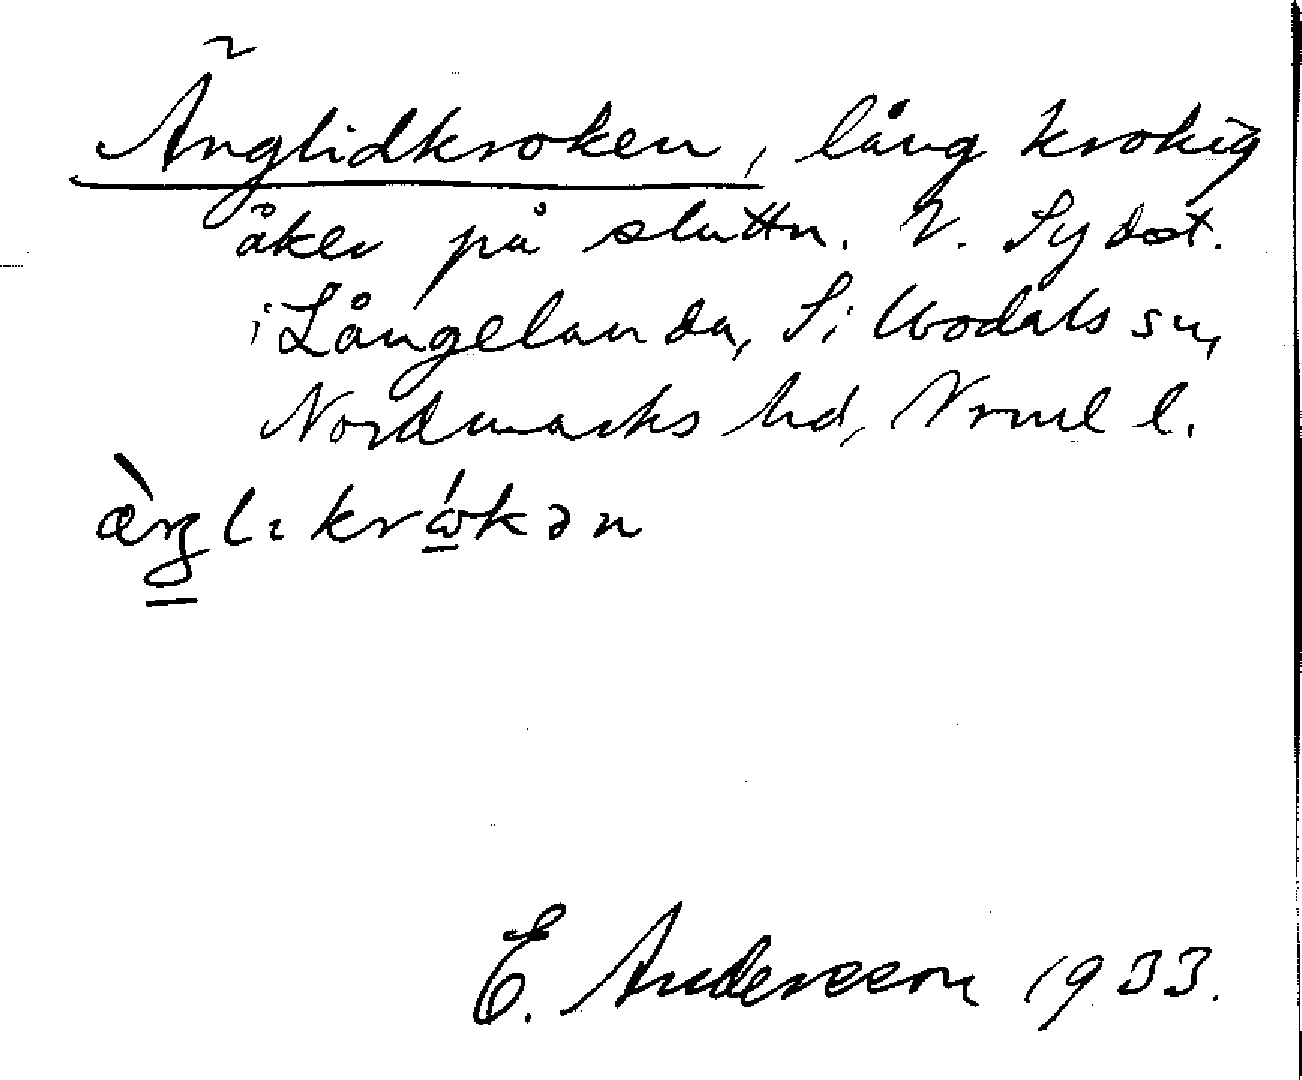 Änglidkroken, lång krokig
åker på sluttn. V. Sydöst.
i Långelanda, Sillbodals sn,
Nordmarks hd, Vrml l.
æ̀ŋlɩkrώkən
E. Andersson 1933.